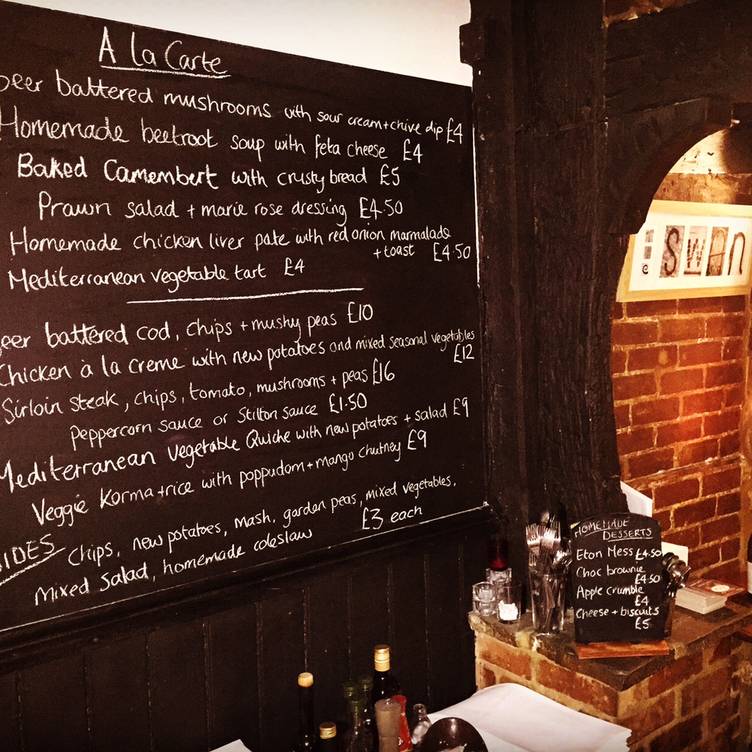 A la Carte
beer battered mushrooms with sour cream + chive dip £4
Homemade beetroot soup with feta cheese £4
Baked Camembert with crusty bread £5
Prawn salad + marie rose dressing £4.50
Homemade chicken liver pate with red onion marmalade
+ toast £4.50
Mediterranean vegetable tart £4
beer battered cod, chips + mushy peas £10
Chicken à la creme with new potatoes and mixed seasonal vegetables
£12
Sirloin steak, chips, tomato, mushrooms + peas £16
Peppercorn sauce or Stilton sauce £1.50
Mediterranean vegetable Quiche with new potatoes + salad £9
Veggie Korma + rice with poppudom + mango chutney £9
SIDES chips, new potatoes, mash, garden peas, mixed vegetables,
Mixed salad, homemade coleslaw £3 each
SWAN
HOMEMADE
DESSERTS
Eton Mess £4.50
Choc brownie
£4.50
Apple crumble
£4
Cheese + biscuits
£5